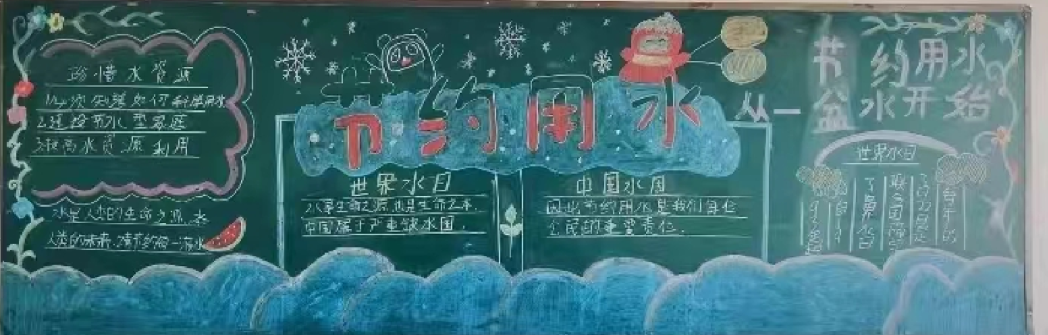 珍惜水资源
2.选择节水型家庭
3.提高水资源利用
水是人类的生命之源,水
人类的未来,请节约每一滴水
节约用水
世界水日
水是生命之源,也是生命之本,
中国属于严重缺水国.
中国水周
因此节约用水是我们每位
公民的重要责任.
节约用水
从一盆水开始
世界水日
每年的
3月22日是
联合国
世界水日